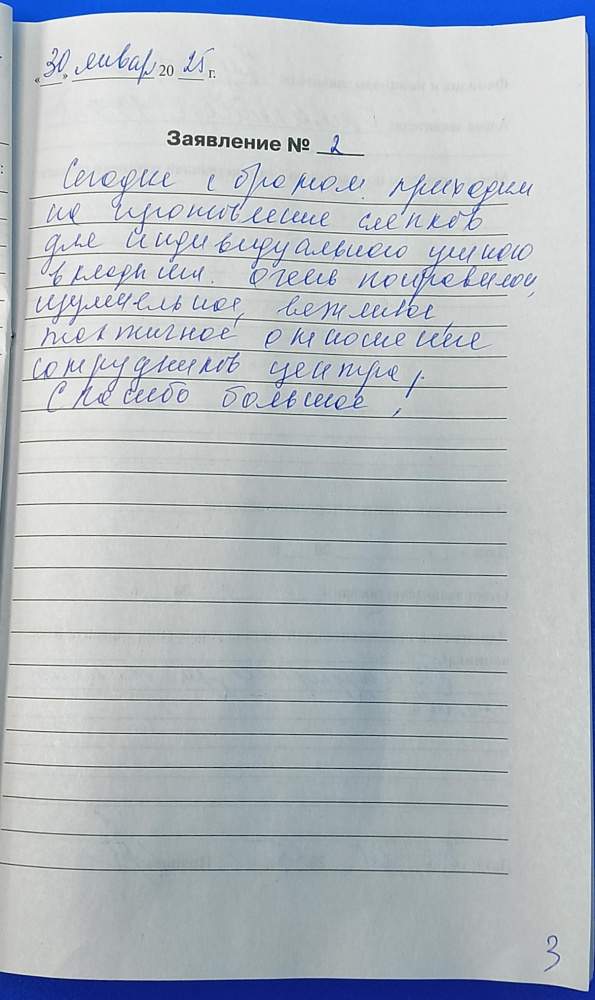 «30» январ 2025 г.
Заявление № 2
Сегодне с братом приходили
на изготовление слепков
для индивидуального ушного
вкладыша. Очень понравилось,
щумательное, вежливое,
тактичное отношение
сотрудников центра.
Спасибо большое!
3